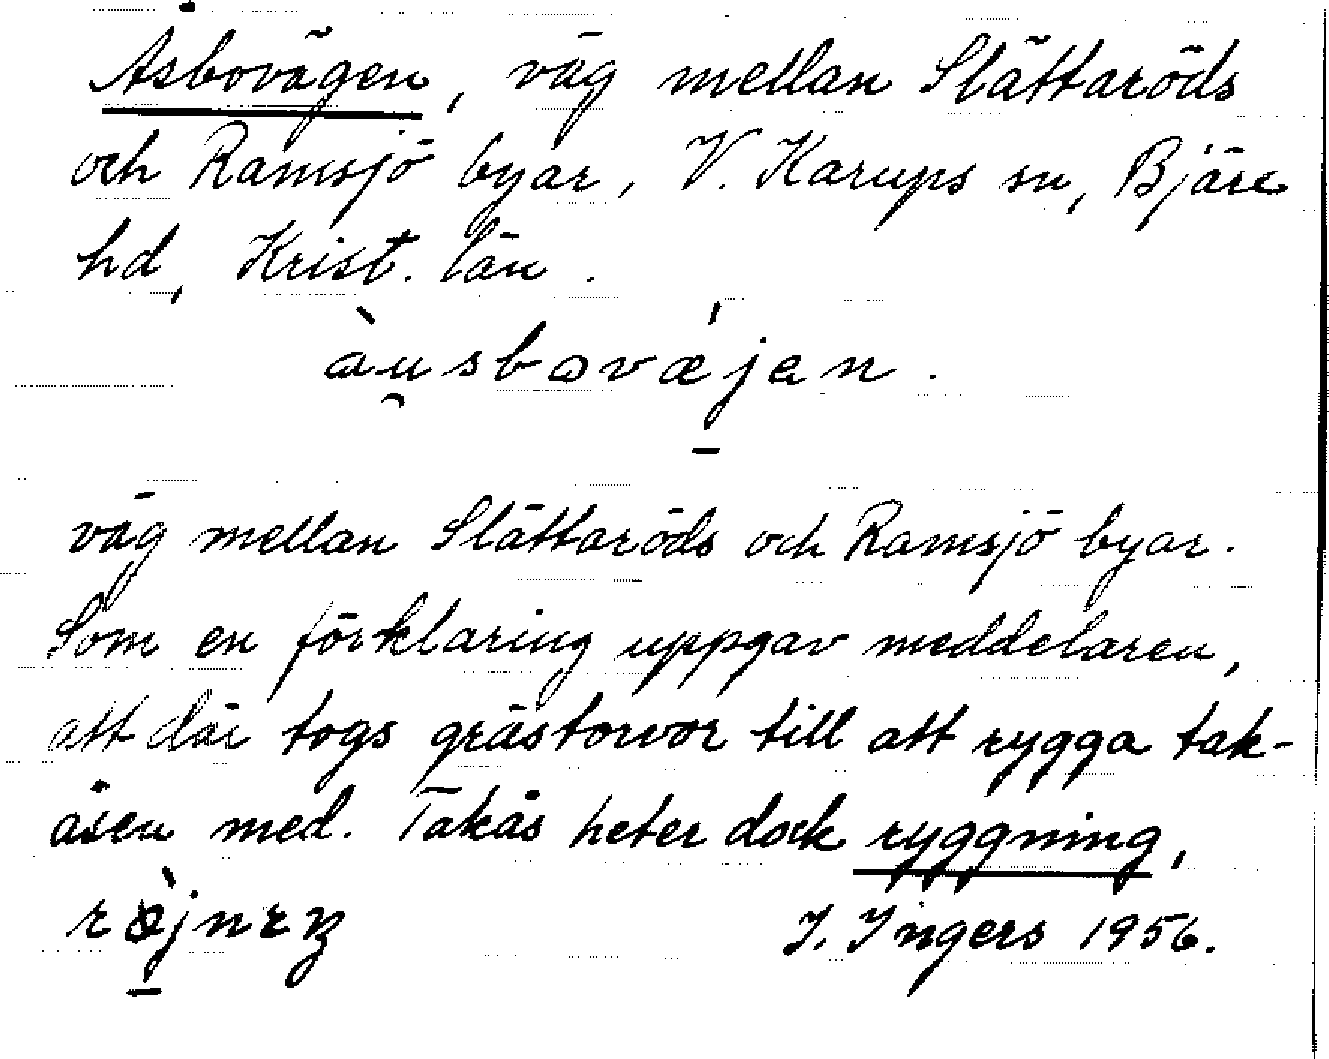 Åsbovägen, väg mellan Slättaröds
och Ramsjö byar, V. Karups sn, Bjäre
hd, Krist. län.
àu̯sbovæ̍jan.
väg mellan Slättaröds och Ramsjö byar.
Som en förklaring uppgav meddelaren,
att där togs grästorvor till att rygga tak-
åsen med. Takås heter dock ryggning,
I. Ingers 1956.